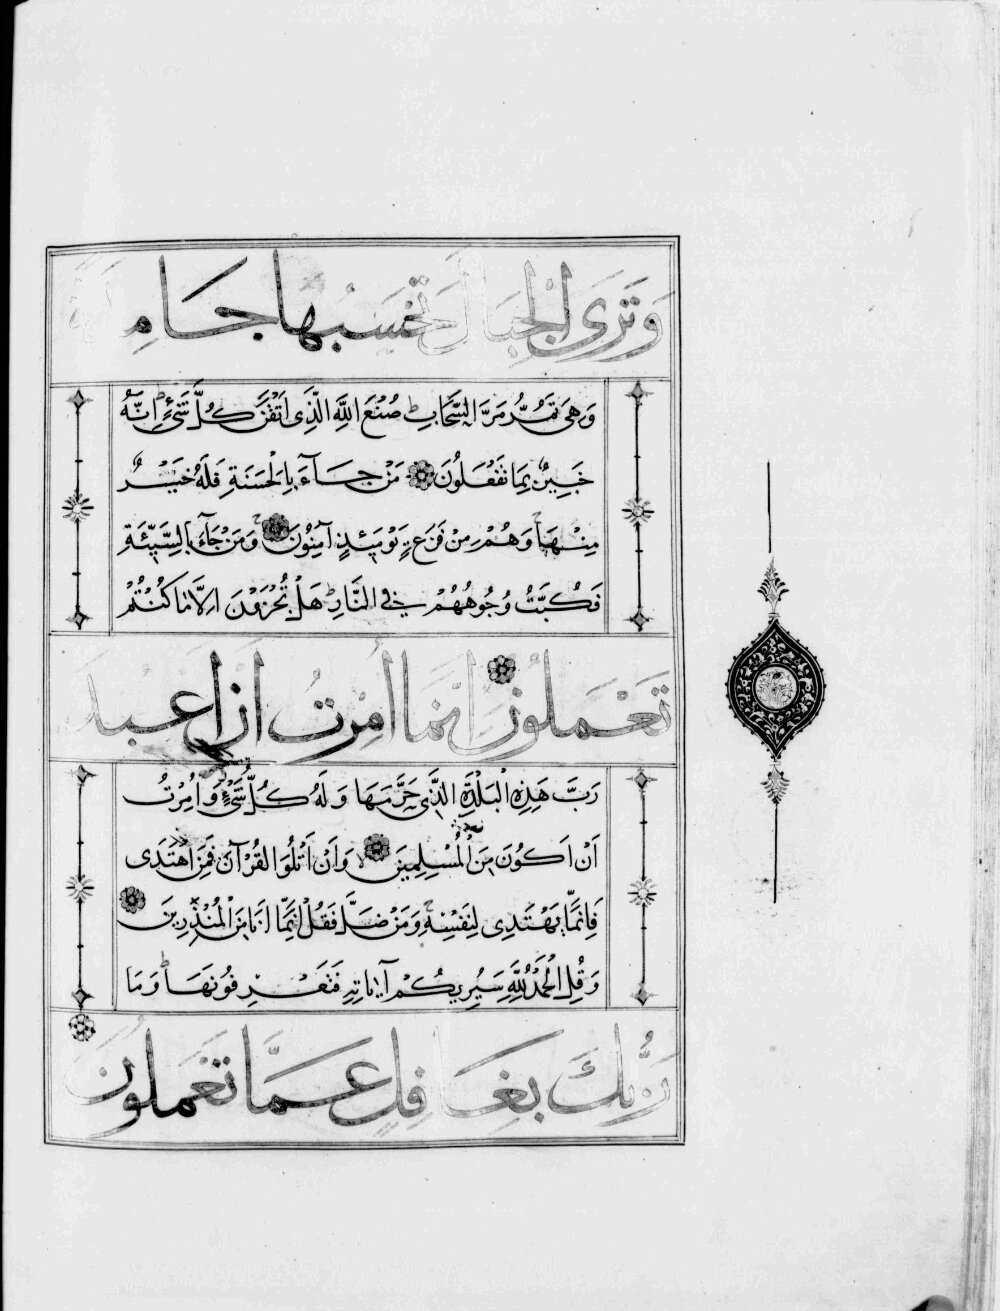 وَتَرَى الْجِبَالَ تَحْسَبُهَا جَامِدَةً
وَهِىَ تَمُرُّ مَرَّ السَّحَابِ صُنْعَ اللَّهِ الَّذِى اَتْقَنَ كُلَّ شَىْءٍ اِنَّهُ
خَبِيرٌ بِمَا تَفْعَلُونَ مَنْ جَاءَ بِالْحَسَنَةِ فَلَهُ خَيْرٌ
مِنْهَا وَهُمْ مِنْ فَزَعٍ يَوْمَئِذٍ آمِنُونَ وَمَنْ جَاءَ بِالسَّيِّئَةِ
فَكُبَّتْ وُجُوهُهُمْ فِى النَّارِ هَلْ تُجْزَوْنَ اِلَّا مَا كُنْتُمْ
تَعْمَلُونَ اِنَّمَا اُمِرْتُ اَنْ اَعْبُدَ
رَبَّ هَذِهِ الْبَلْدَةِ الَّذِى حَرَّمَهَا وَلَهُ كُلُّ شَىْءٍ وَاُمِرْتُ
اَنْ اَكُونَ مِنَ الْمُسْلِمِينَ وَاَنْ اَتْلُوَا الْقُرْآنَ فَمَنِ اهْتَدَى
فَاِنَّمَا يَهْتَدِى لِنَفْسِهِ وَمَنْ ضَلَّ فَقُلْ اِنَّمَا اَنَا مِنَ الْمُنْذِرِينَ
وَقُلِ الْحَمْدُ لِلَّهِ سَيُرِيكُمْ آيَاتِهِ فَتَعْرِفُونَهَا وَمَا
رَبُّكَ بِغَافِلٍ عَمَّا تَعْمَلُونَ